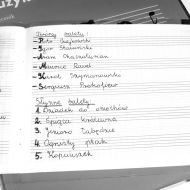 Twórcy baletu:
- Piotr Czajkowski
- Igor Strawiński
- Aram Chaczaturian
- Maurice Ravel
- Karol Szymanowski
- Sergiusz Prokofiew
Słynne balety:
1. Dziadek do orzechów
2. Śpiąca królewna
3. Jezioro łabędzie
4. Ognisty ptak
5. Kopciuszek